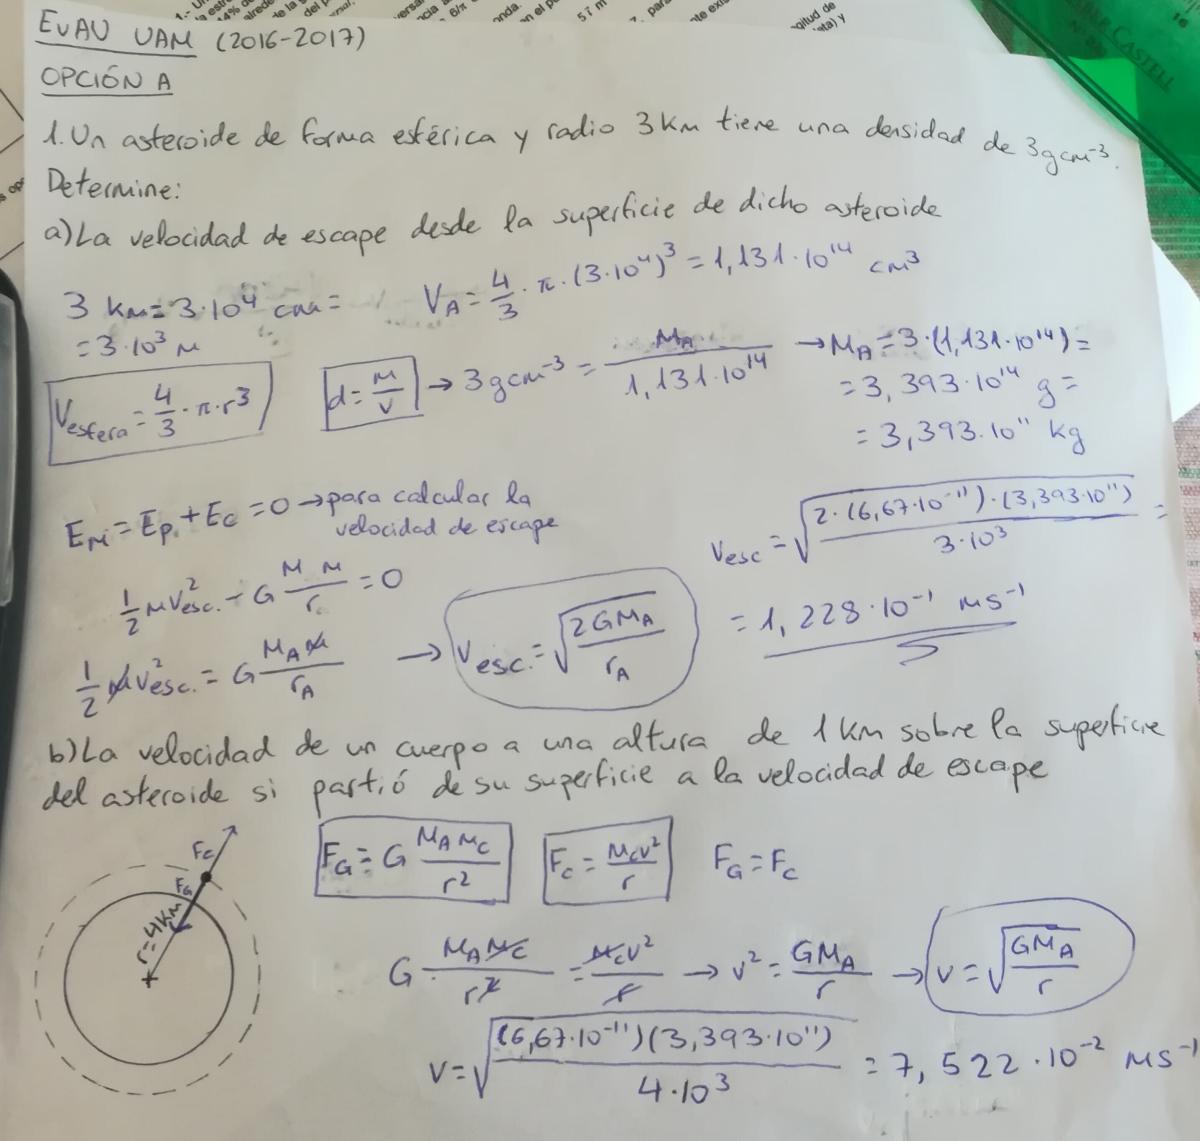 EVAU UAM (2016-2017)
OPCIÓN A
1. Un asteroide de forma esférica y radio 3 Km tiene una densidad de 3 g cm⁻³.
Determine:
a) La velocidad de escape desde la superficie de dicho asteroide
3 Km = 3·10⁴ cm =
= 3·10³ m
V_A = 4/3 · π · (3·10⁴)³ = 1,131·10¹⁴ cm³
V_esfera = 4/3 · π · r³
d = m/v → 3 g cm⁻³ = M_A / 1,131·10¹⁴ → M_A = 3·(1,131·10¹⁴) =
= 3,393·10¹⁴ g =
= 3,393·10¹¹ kg
E_M = E_p + E_c = 0 → para calcular la
velocidad de escape
1/2 m v_esc.² - G M m / r = 0
1/2 m v_esc.² = G M_A m / r_A → v_esc. = √(2GM_A / r_A)
v_esc = √(2·(6,67·10⁻¹¹)·(3,393·10¹¹) / 3·10³) =
= 1,228·10⁻¹ ms⁻¹
b) La velocidad de un cuerpo a una altura de 1 Km sobre la superficie
del asteroide si partió de su superficie a la velocidad de escape
F_C
F_G
r=4KM
F_G = G M_A m_C / r²
F_C = m_C v² / r
F_G = F_C
G M_A m_C / r² = m_C v² / r → v² = GM_A / r → v = √(GM_A / r)
v = √((6,67·10⁻¹¹)(3,393·10¹¹) / 4·10³) = 7,522·10⁻² ms⁻¹